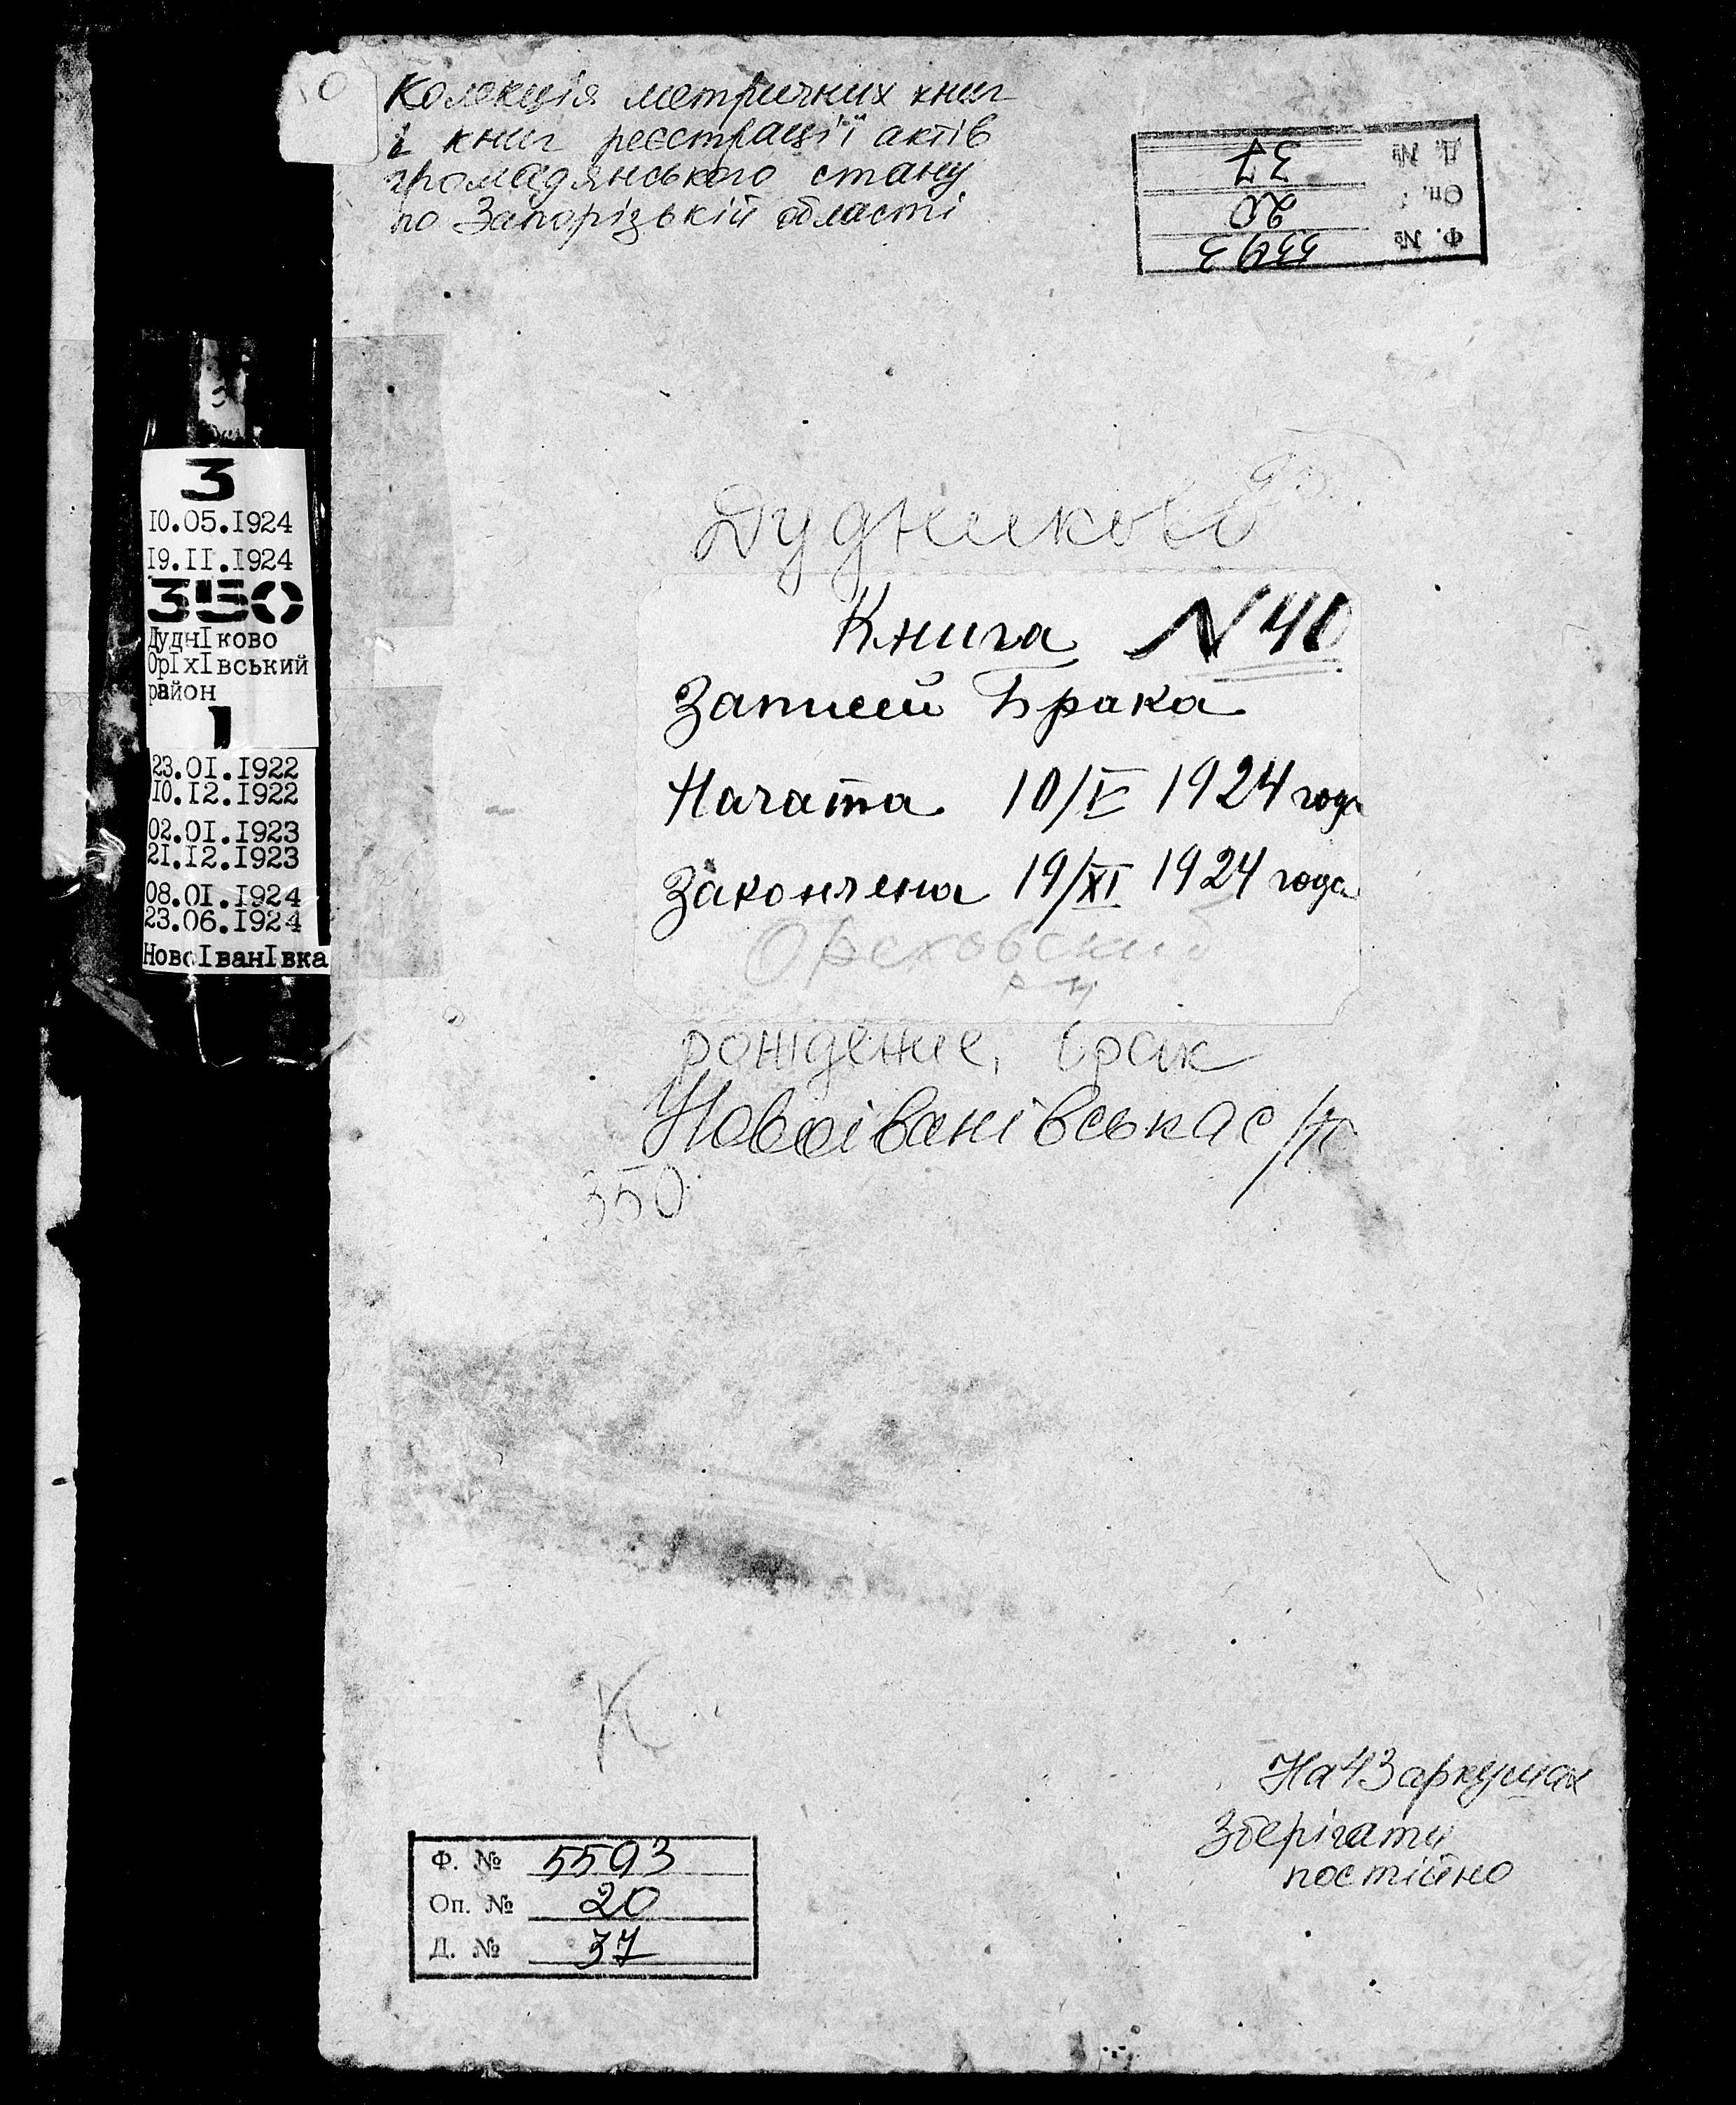 Колекція метричних книг
і книг реєстрації актів
громадянського стану
по Запорізькій області
Д. № 37
Оп. 20
Ф. № 5593
3
10.05.1924
19.II.1924
350
ДуднIково
ОрIхIвський
район
1
23.0I.1922
I0.I2.1922
02.0I.I923
2I.I2.I923
08.0I.I924
23.06.I924
НовоIванIвка
Дудниково
Книга N 40
Записей Брака
Начата 10/V 1924 года
Закончена 19/XI 1924 года
Ореховский
р-н
рождение, брак
Новоіванівська с/
350
К
На 43 аркушах
Зберігати
постійно
Ф. № 5593
Оп. № 20
Д. № 37